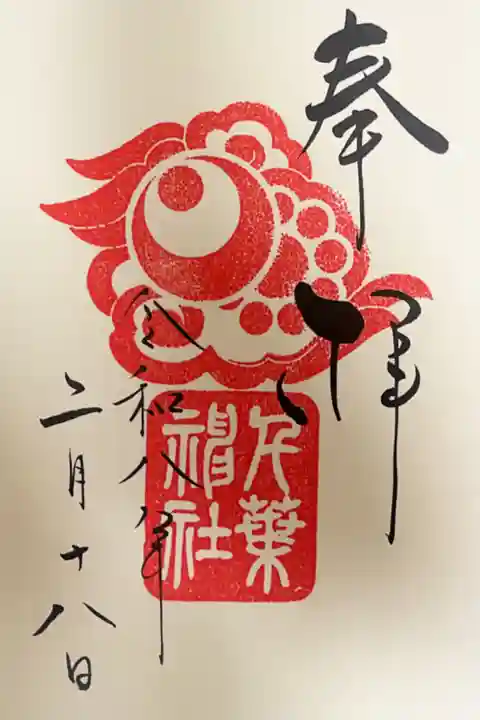 奉拝
令和八年
二月十八日
千葉
神社